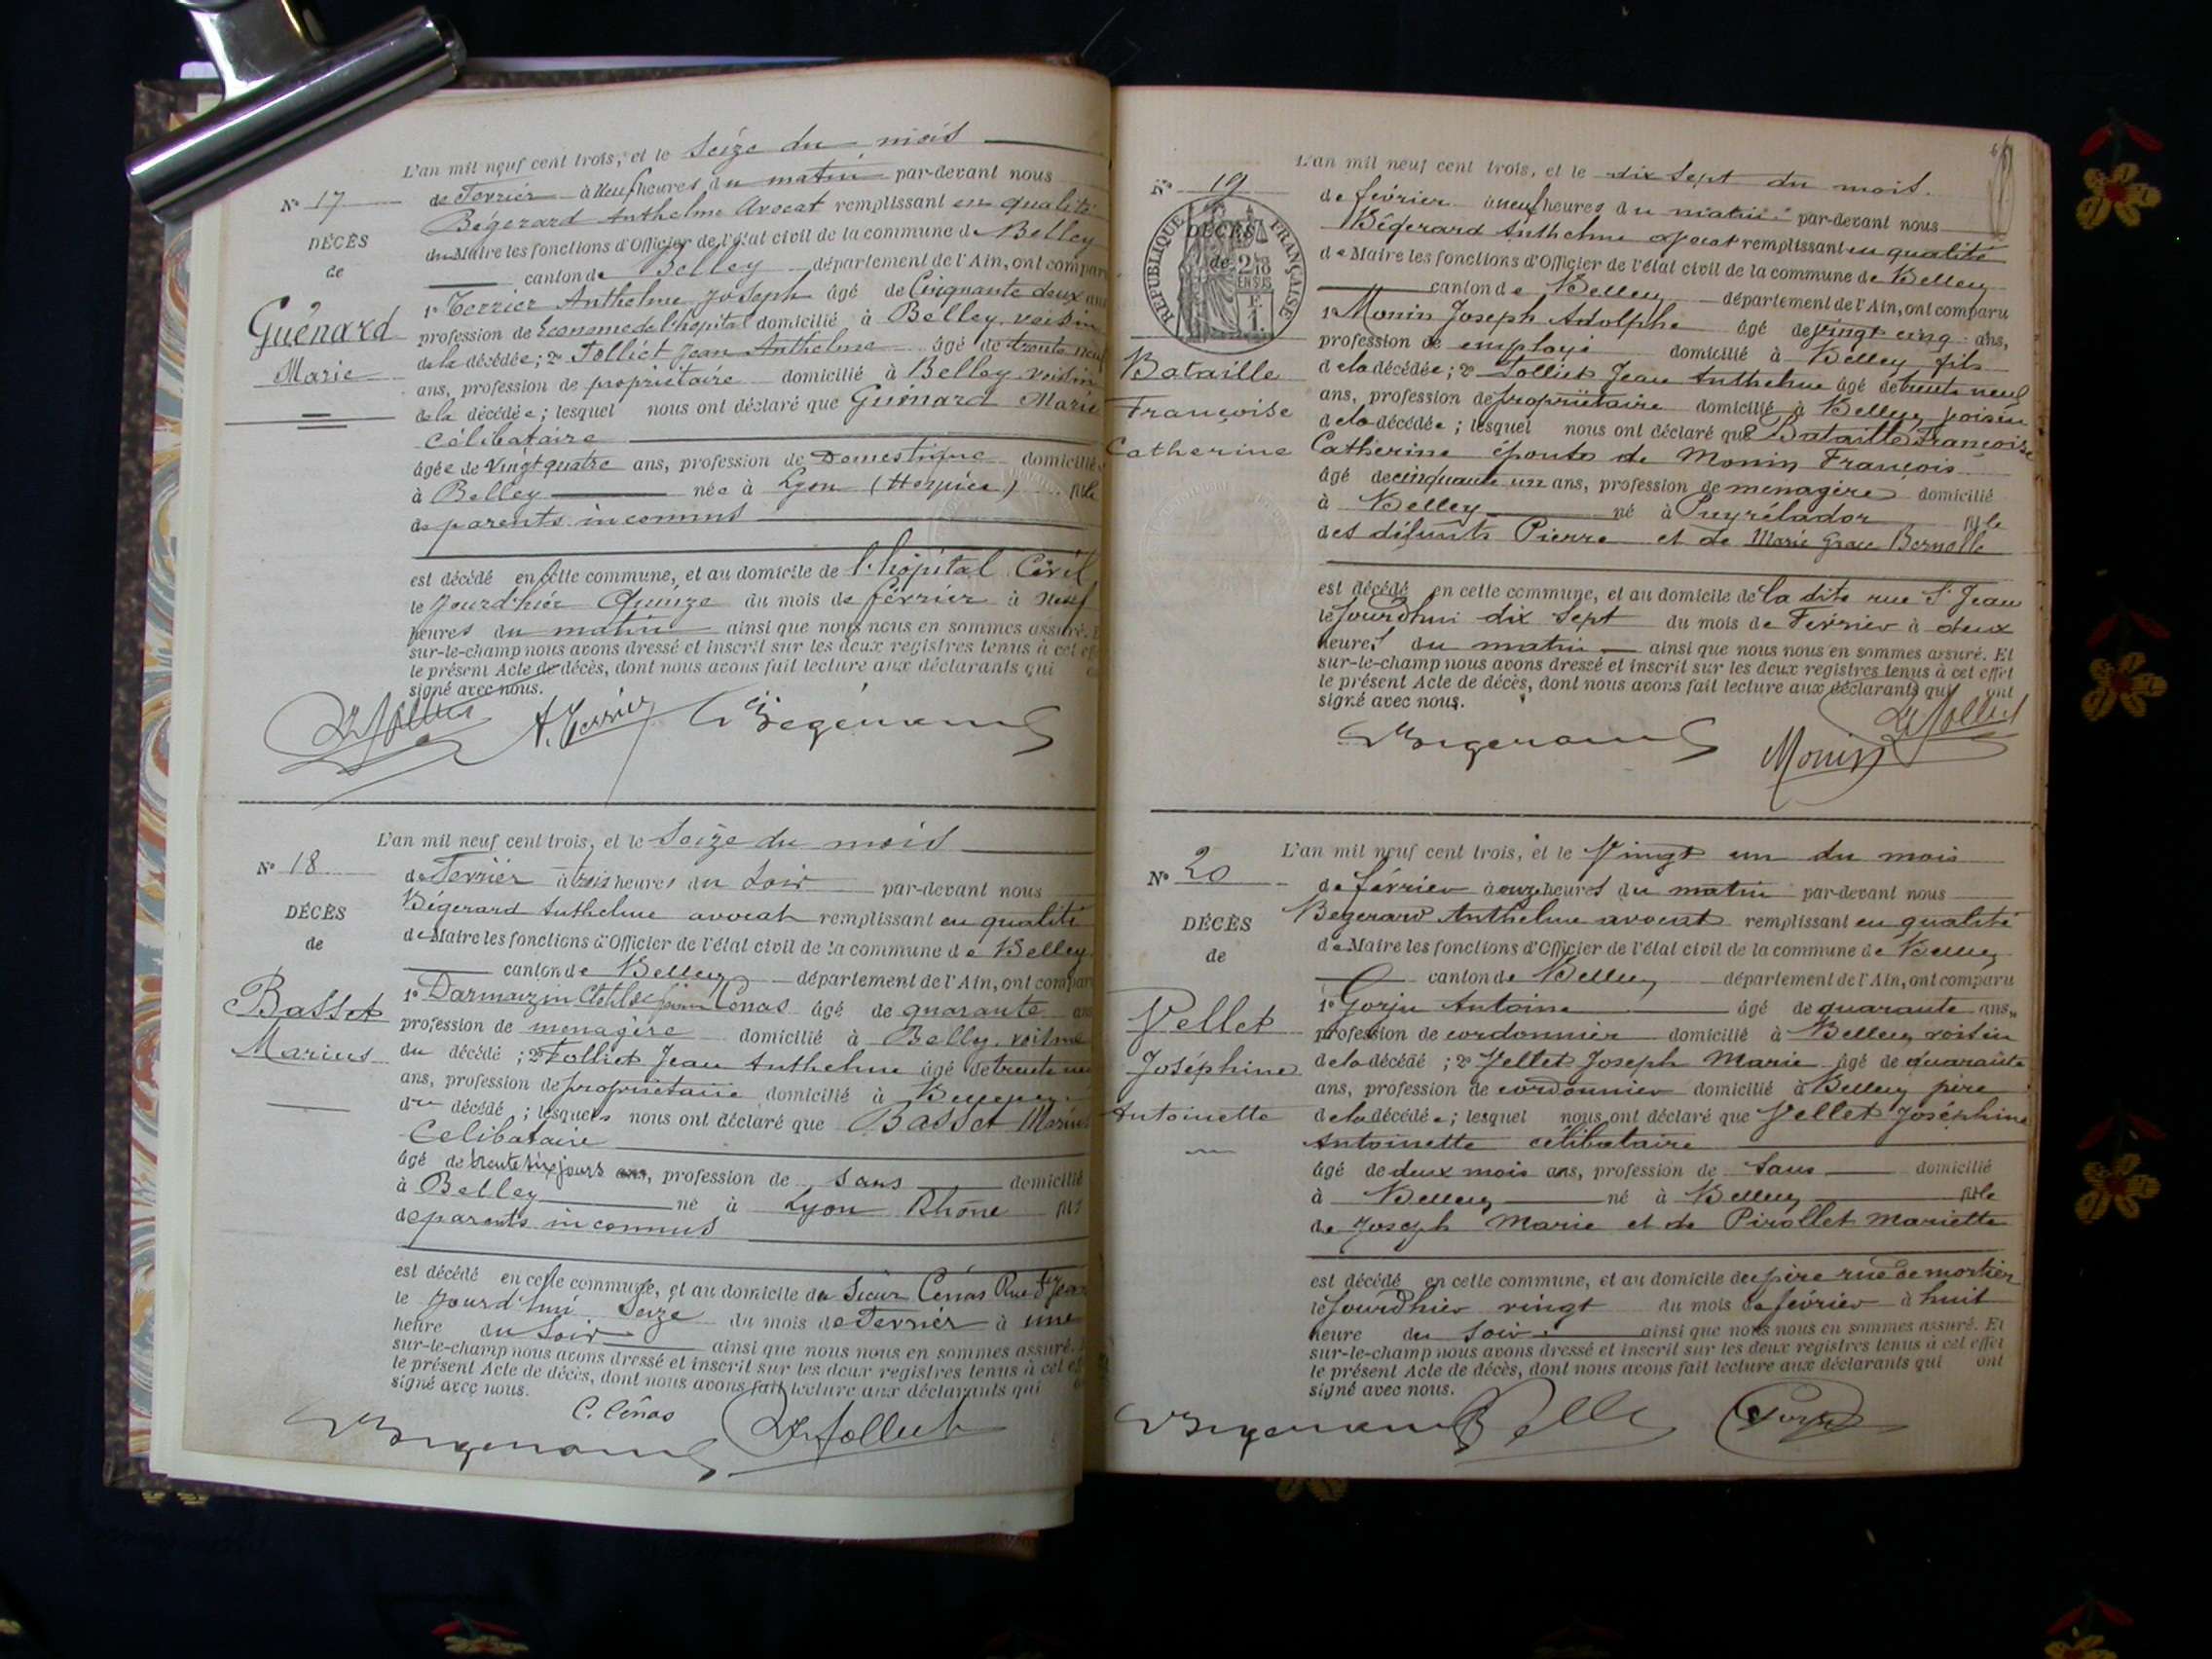 L'an mil neuf cent trois, et le Seize du mois
N° 17 de Fevrier à Neuf heures du matin par-devant nous
Bégerard Anthelme Avocat remplissant en qualité
DÉCÈS du Maire les fonctions d'Officier de l'état civil de la commune de Belley
de canton de Belley département de l'Ain, ont compar
1° Terrier Anthelme Joseph âgé de Cinquante deux ans
Guénard profession de Econome de l'hopital domicilié à Belley voisin
de la décédée; 2° Tolliet Jean Anthelme âgé de trente neuf
Marie ans, profession de propriétaire domicilié à Belley voisin
de la décédée; lesquel nous ont déclaré que Guénard Marie
Célibataire
âgée de vingt quatre ans, profession de Domestique domicilié
à Belley née à Lyon (Hospice) fille
de parents inconnus
est décédé en cette commune, et au domicile de l'hôpital Civil
le jourd'hiér Quinze du mois de février à neuf
heures du matin ainsi que nous nous en sommes assuré. E
sur-le-champ nous avons dressé et inscrit sur les deux registres tenus à cet ef
le présent Acte de décès, dont nous avons fait lecture aux déclarants qui
signé avec nous.
Tolliet A. Terrier Bégerard
L'an mil neuf cent trois, et le Seize du mois
N° 18 de Fevrier à trois heures du Soir par-devant nous
Bégerard Anthelme avocat remplissant en qualité
DÉCÈS de Maire les fonctions d'Officier de l'état civil de la commune de Belley
de canton de Belley département de l'Ain, ont compar
1° Darmaizin Clotilde femme Cénas âgé de quarante ans
Basset profession de menagère domicilié à Belley voisine
Marius du décédé; 2° Tolliet Jean Anthelme âgé de trente neu
ans, profession de propriétaire domicilié à Belley
du décédé; lesquels nous ont déclaré que Basset Marius
Celibataire
âgé de trente six jours ans, profession de sans domicilié
à Belley né à Lyon Rhône fils
de parents inconnus
est décédé en cette commune, et au domicile du Sieur Cénas Rue St Jean
le jourd'hui Seize du mois de Fevrier à une
heure du Soir ainsi que nous nous en sommes assuré.
sur-le-champ nous avons dressé et inscrit sur les deux registres tenus à cet ef
le présent Acte de décès, dont nous avons fait lecture aux déclarants qui
signé avec nous.
C. Cénas
Bégerard Tolliet
L'an mil neuf cent trois, et le dix Sept du mois
N° 19 de février à neuf heures du matin par-devant nous
Bégerard Anthelme avocat remplissant en qualité
DÉCÈS de Maire les fonctions d'Officier de l'état civil de la commune de Belley
de canton de Belley département de l'Ain, ont comparu
RÉPUBLIQUE FRANÇAISE
2/10 EN SUS
F. 1.
1° Monin Joseph Adolphe âgé de vingt cinq ans,
profession de employé domicilié à Belley fils
Bataille de la décédée; 2° Tolliet Jean Anthelme âgé de trente neuf
ans, profession de propriétaire domicilié à Belley voisin
Françoise de la décédée; lesquel nous ont déclaré que Bataille Françoise
Catherine Catherine épouse de Monin François
âgé de cinquante un ans, profession de menagère domicilié
à Belley né à Puyrélador fille
des défunts Pierre et de Marie Grace Bornelle
est décédé en cette commune, et au domicile de la dite rue St Jean
le jourdhui dix Sept du mois de Février à deux
heures du matin ainsi que nous nous en sommes assuré. Et
sur-le-champ nous avons dressé et inscrit sur les deux registres tenus à cet effet
le présent Acte de décès, dont nous avons fait lecture aux déclarants qui ont
signé avec nous.
Bégerard Monin Tolliet
L'an mil neuf cent trois, et le Vingt un du mois
N° 20 de février à onze heures du matin par-devant nous
Bégerard Anthelme avocat remplissant en qualité
DÉCÈS de Maire les fonctions d'Officier de l'état civil de la commune de Belley
de canton de Belley département de l'Ain, ont comparu
1° Gorju Antoine âgé de quarante ans,
Vellet profession de cordonnier domicilié à Belley voisin
Joséphine de la décédé; 2° Vellet Joseph Marie âgé de quarante
ans, profession de cordonnier domicilié à Belley père
Antoinette de la décédée; lesquel nous ont déclaré que Vellet Joséphine
Antoinette célibataire
âgé de deux mois ans, profession de Sans domicilié
à Belley né à Belley fille
de Joseph Marie et de Pirollet Mariette
est décédé en cette commune, et au domicile du père rue de mortier
le jourdhier vingt du mois de février à huit
heure du soir ainsi que nous nous en sommes assuré. Et
sur-le-champ nous avons dressé et inscrit sur les deux registres tenus à cet effet
le présent Acte de décès, dont nous avons fait lecture aux déclarants qui ont
signé avec nous.
Bégerard Vellet Gorju